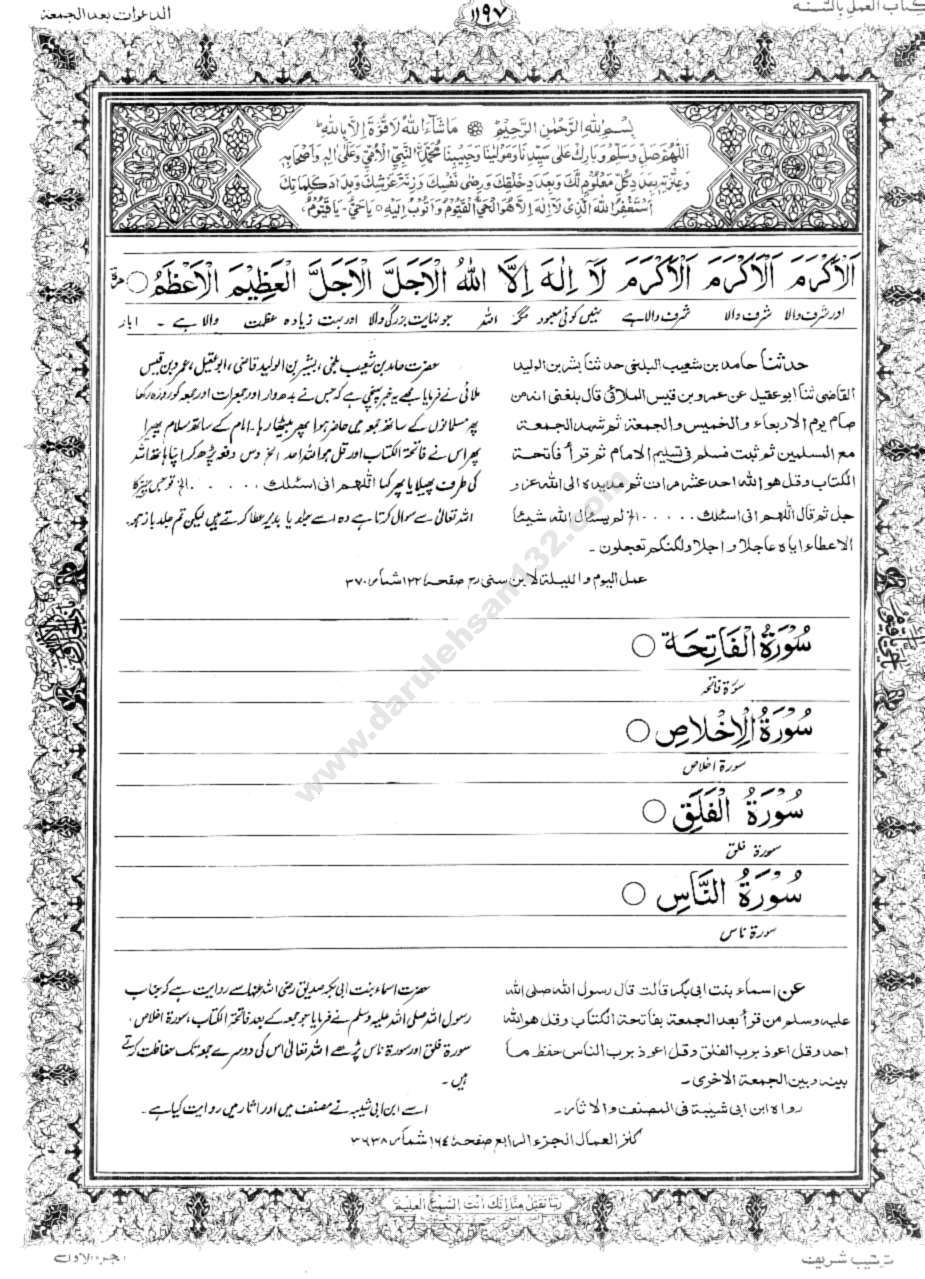 كتاب العمل بالسنة
١١٩٧
الدعوات بعد الجمعة
بِسْمِ اللهِ الرَّحْمٰنِ الرَّحِيْمِ مَا شَآءَ اللهُ لَا قُوَّةَ اِلَّا بِاللهِ
اَللّٰهُمَّ صَلِّ وَسَلِّمْ وَبَارِكْ عَلٰى سَيِّدِنَا وَمَوْلٰينَا وَحَبِيْبِنَا مُحَمَّدِ النَّبِيِّ الْاُمِّيِّ وَعَلٰى اٰلِهٖ وَاَصْحَابِهٖ
وَعِتْرَتِهٖ بِعَدَدِ كُلِّ مَعْلُوْمٍ لَّكَ وَبِعَدَدِ خَلْقِكَ وَرِضٰى نَفْسِكَ وَزِنَةَ عَرْشِكَ وَمِدَادَ كَلِمَاتِكَ
اَسْتَغْفِرُ اللهَ الَّذِىْ لَآ اِلٰهَ اِلَّا هُوَ الْحَيُّ الْقَيُّوْمُ وَاَتُوْبُ اِلَيْهِ يَا حَيُّ يَا قَيُّوْمُ
اَلْاَكْرَمَ اَلْاَكْرَمَ اَلْاَكْرَمَ لَآ اِلٰهَ اِلَّا اللهُ الْاَجَلَّ الْاَجَلَّ الْعَظِيْمَ الْاَعْظَمَ مرة
اور شرف والا شرف والا شرف والا ہے نہیں کوئی معبود مگر اللہ جو نہایت بزرگی والا اور بہت زیادہ عظمت والا ہے - ابار
حدثنا حامد بن شعيب البلخى حدثنا بشر بن الوليد
القاضى ثنا ابو عقيل عن عمرو بن قيس الملائى قال بلغنى انه من
صام يوم الاربعاء والخميس والجمعة ثم شهد الجمعة
مع المسلمين ثم ثبت فسلم فى تسليم الامام ثم قرأ فاتحة
الكتاب وقل هو الله احد عشر مرات ثم مد يده الى الله عز و
جل ثم قال اللهم انى اسئلك ..... الخ لم يسئال الله شيئا
الا عطاء اياه عاجلا و اجلا ولكنكم تعجلون -
حضرت حامد بن شعیب بلخی، بشیر بن الولید قاضی، ابوعقیل، عمرو بن قیس
ملائی نے فرمایا مجھے یہ خبر پہنچی ہے کہ جس نے بدھ وار اور جمعرات اور جمعہ کو روزہ رکھا
پھر مسلمانوں کے ساتھ جمعہ میں حاضر ہوا پھر بیٹھا رہا۔ امام کے ساتھ سلام پھیرا
پھر اس نے فاتحۃ الکتاب اور قل ہو اللہ احد الخ دس دفعہ پڑھ کر اپنا ہاتھ اللہ
کی طرف پھیلایا پھر کہا اللهم انى اسئلك ..... الخ تو جس چیز کا
اللہ تعالیٰ سے سوال کرتا ہے وہ اسے جلد یا بدیر عطا کرتے ہیں لیکن تم جلد باز ہو۔
عمل اليوم والليلة لابن سنى رح صفحة ١٢٢ شمار ٣٧٠
سُوْرَةُ الْفَاتِحَة
سورۃ فاتحہ
سُوْرَةُ الْاِخْلَاصِ
سورۃ اخلاص
سُوْرَةُ الْفَلَقِ
سورۃ فلق
سُوْرَةُ النَّاسِ
سورۃ ناس
عن اسماء بنت ابى بكر قالت قال رسول الله صلى الله
عليه وسلم من قرأ بعد الجمعة بفاتحة الكتاب وقل هو الله
احد وقل اعوذ برب الفلق وقل اعوذ برب الناس حفظ ما
بينه وبين الجمعة الاخرى -
رواه ابن ابى شيبة فى المصنف والاثار -
حضرت اسماء بنت ابی بکر صدیق رضی اللہ عنہا سے روایت ہے کہ جناب
رسول اللہ صلی اللہ علیہ وسلم نے فرمایا جو جمعہ کے بعد فاتحۃ الکتاب، سورۃ اخلاص،
سورۃ فلق اور سورۃ ناس پڑھے اللہ تعالیٰ اس کی دوسرے جمعہ تک حفاظت کرتے
ہیں -
اسے ابن ابی شیبہ نے مصنف میں اور اثار میں روایت کیا ہے -
كنز العمال الجزء الرابع صفحة ١٦٤ شمار ٣٦٣٨
ربنا تقبل منا انك انت السميع العليم
ترتيب شريف
الجزء الاول
www.darulehsan132.com